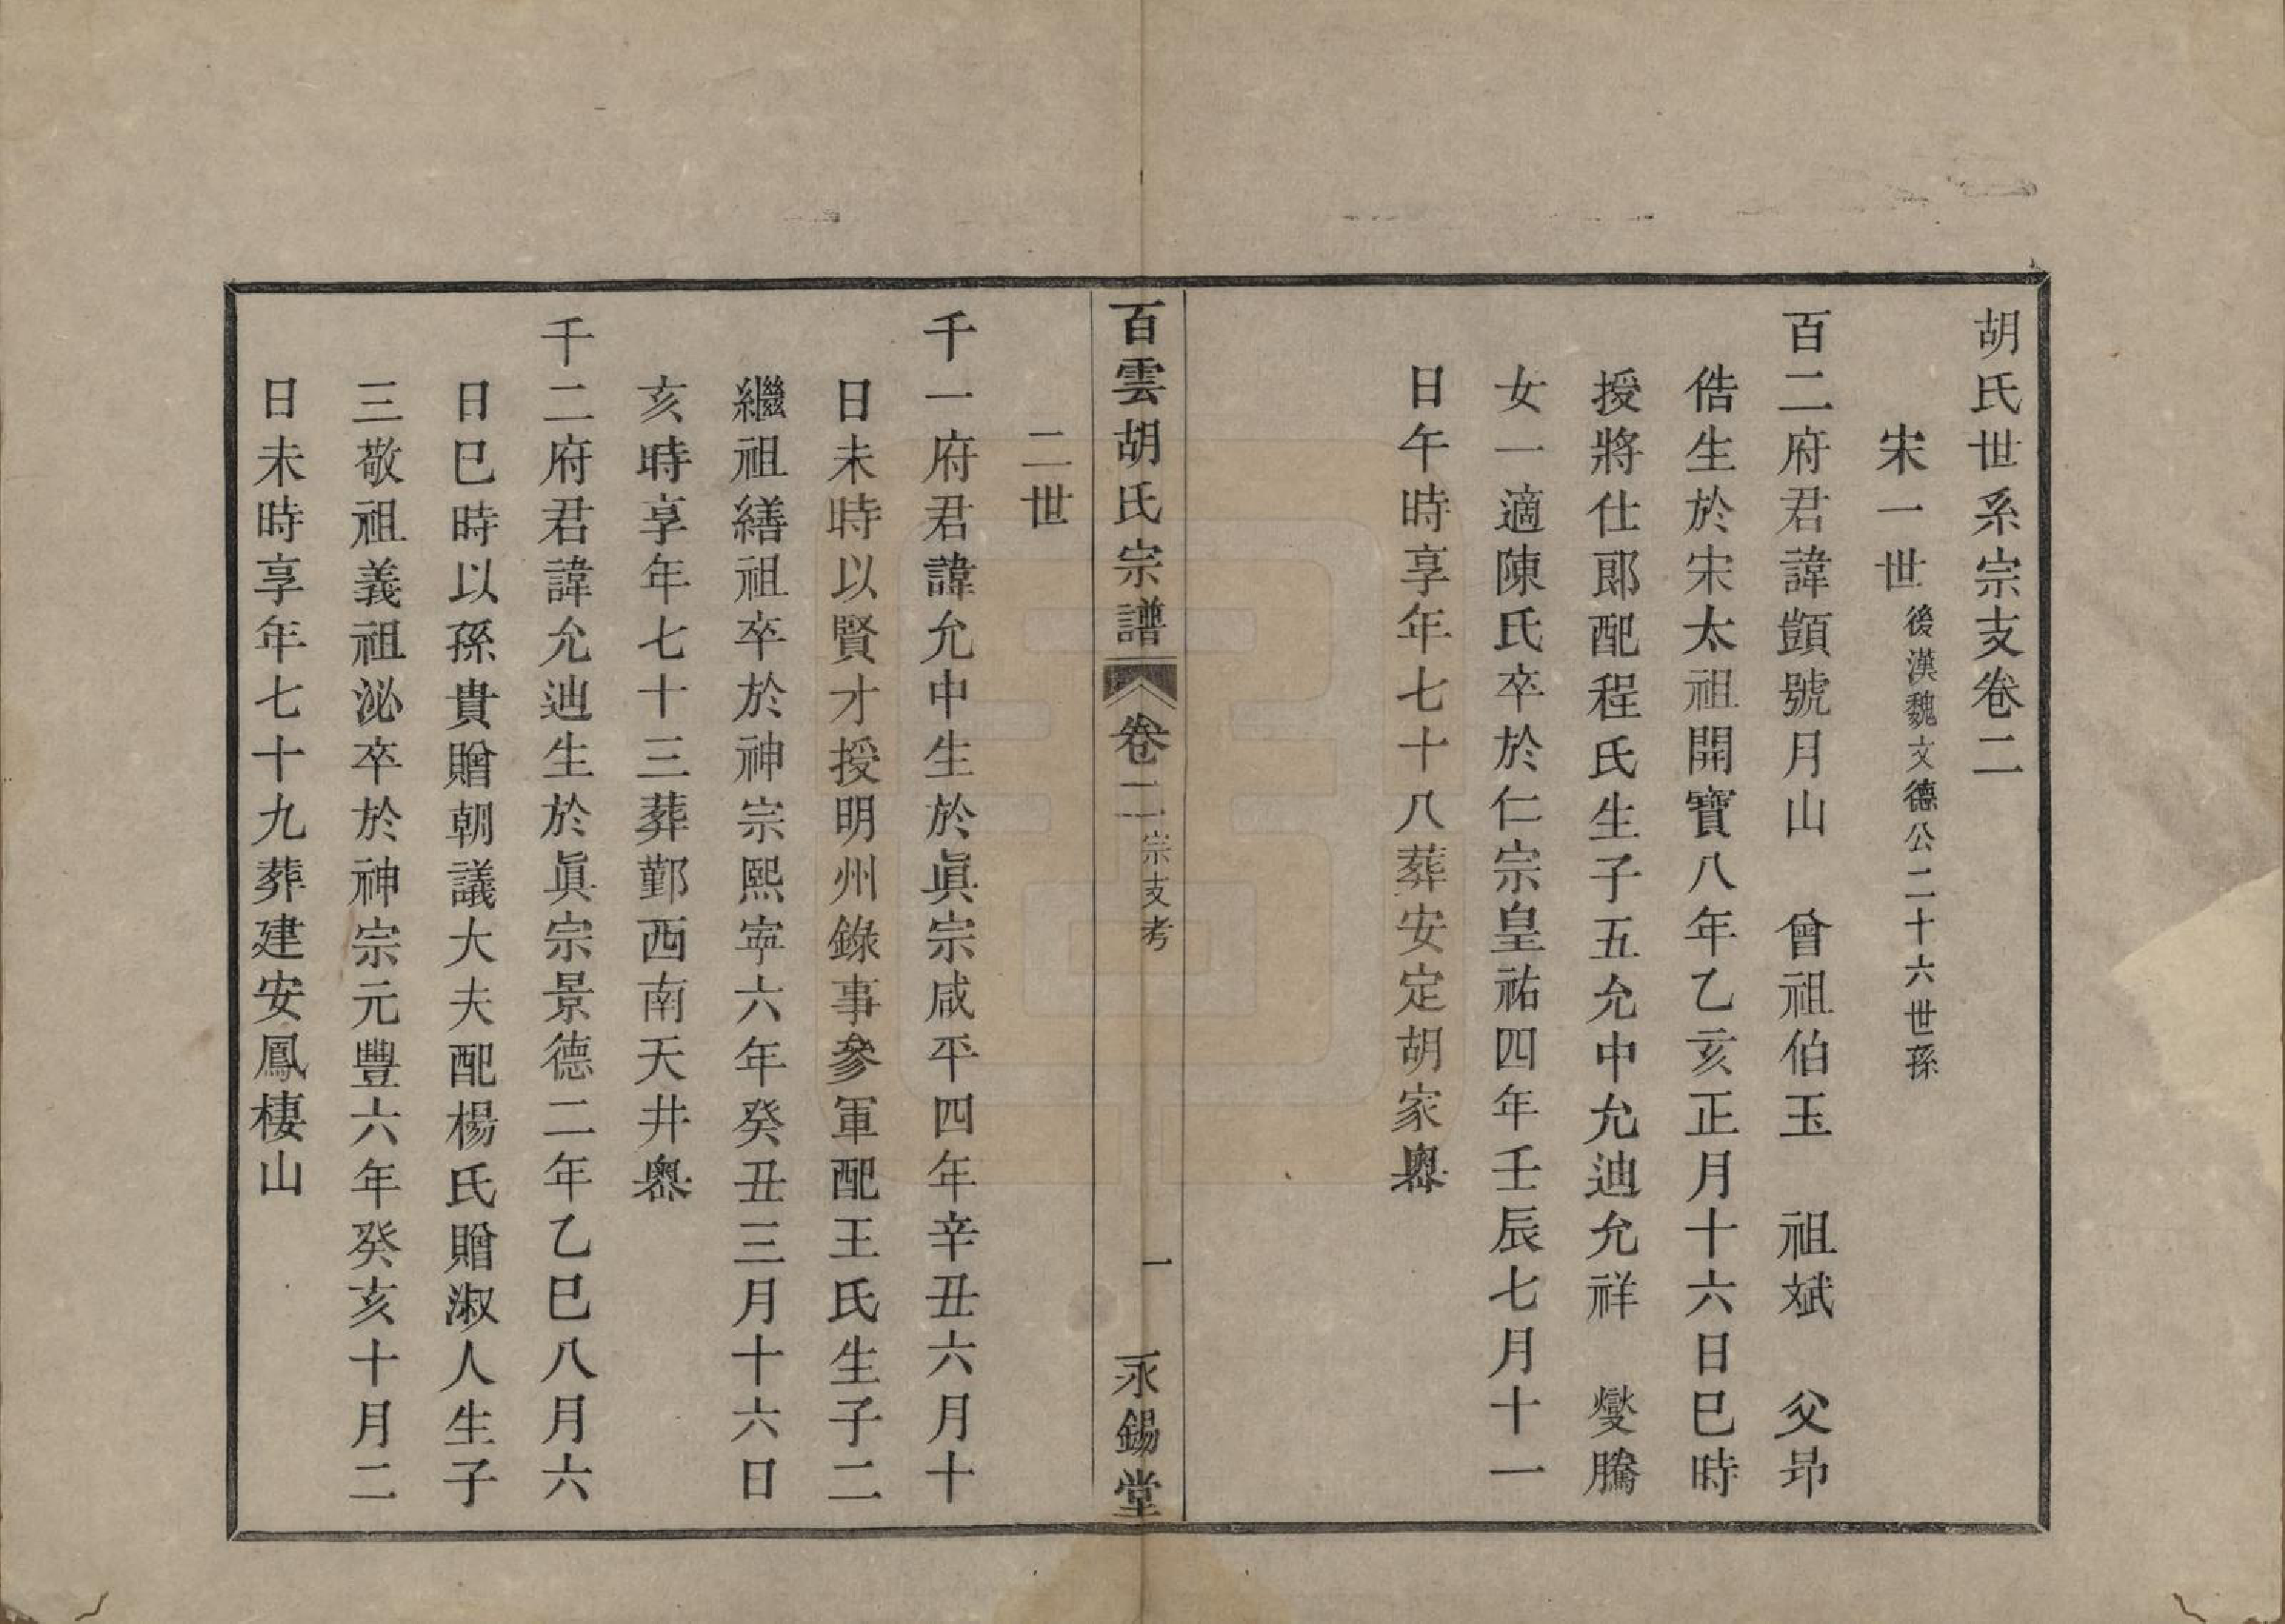 胡氏世系宗支卷二
宋一世後漢魏文德公二十六世孫
百二府君諱顗號月山　曾祖伯玉　祖斌　父昂
俈生於宋太祖開寶八年乙亥正月十六日巳時
授將仕郎配程氏生子五允中允迪允祥　燮騰
女一適陳氏卒於仁宗皇祐四年壬辰七月十一
日午時享年七十八葬安定胡家㠗
百雲胡氏宗譜　卷二宗支考　一　永錫堂
二世
千一府君諱允中生於眞宗咸平四年辛丑六月十
日未時以賢才授明州錄事參軍配王氏生子二
繼祖繕祖卒於神宗熙寧六年癸丑三月十六日
亥時享年七十三葬鄞西南天井㠗
千二府君諱允迪生於眞宗景德二年乙巳八月六
日巳時以孫貴贈朝議大夫配楊氏贈淑人生子
三敬祖義祖泌卒於神宗元豐六年癸亥十月二
日未時享年七十九葬建安鳳棲山